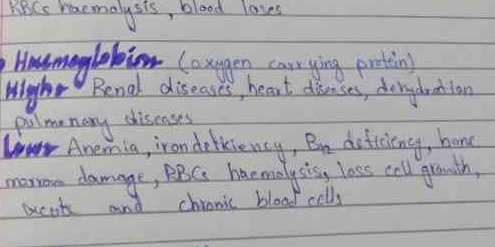 RBCs haemolysis, blood loses
Haemoglobion (oxygen carrying protein)
Higher Renal diseases, heart diseases, dehydration
pulmonary diseases
Lower Anemia, iron deficiency, B12 deficiency, bone
marrow damage, RBCs haemolysis, loss cell growth,
acute and chronic blood cells